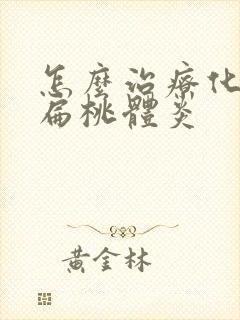 怎麼治療化
扁桃體炎
黃金林